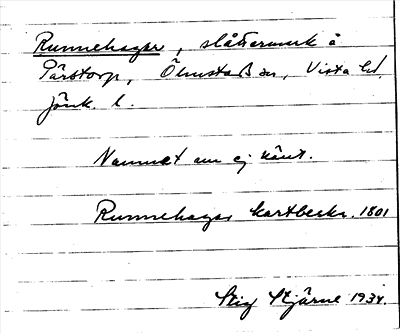 Runnehagar, slåttermark å
Pärstorp, Ölmstads sn, Vista hd,
Jönk. l.
Namnet nu ej känt.
Runnehagar kartbeskr. 1801
Stig Stjärne 1934.